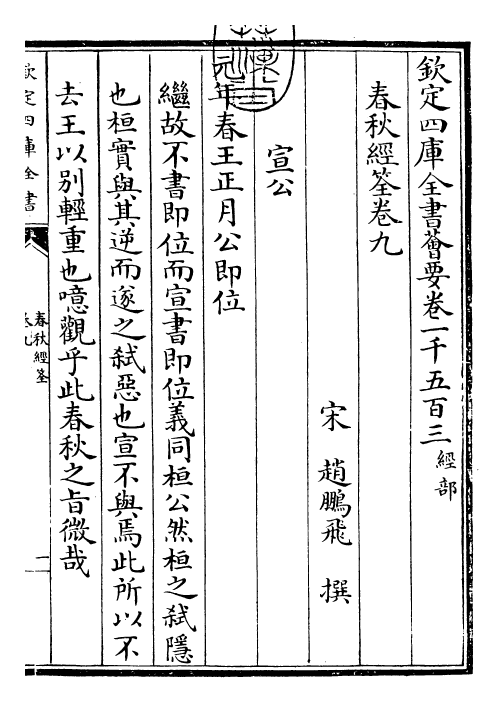 欽定四庫全書薈要卷一千五百三 經部
春秋經筌卷九
宋 趙鵬飛 撰
宣公
元年春王正月公即位
繼故不書即位而宣書即位義同桓公然桓之弑隱
也桓實與其逆而遂之弑惡也宣不與焉此所以不
去王以別輕重也噫觀乎此春秋之旨微哉
欽定四庫全書
春秋經筌
卷九
一